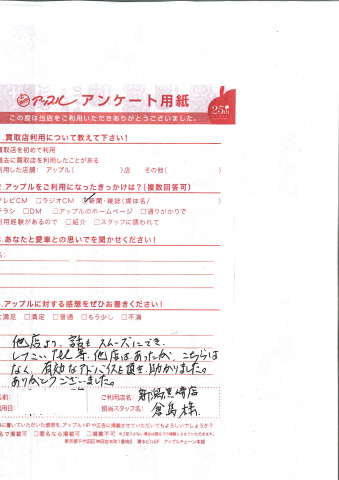 アップル アンケート用紙
25周年
この度は当店をご利用いただきありがとうございました。
.買取店利用について教えて下さい！
買取店を初めて利用
過去に買取店を利用したことがある
利用した店舗： アップル（ ）店 その他（ ）
.アップルをご利用になったきっかけは？（複数回答可）
テレビCM □ラジオCM ☑新聞・雑誌（媒体名/ ）
チラシ □DM □アップルのホームページ □通りがかりで
利用経験があるので □紹介 □スタッフに誘われて
.あなたと愛車との思いでを聞かせください！
名：
.アップルに対する感想をぜひお書きください！
大満足 □満足 □普通 □もう少し □不満
他店より、話もスムーズにでき、
しつこいTEL等、他店はあったが、こちらは
なく、有効なアドバイスも頂き、助かりました。
ありがとうございました。
名前： ご利用店名： 新潟黒埼店
利用日： 担当スタッフ名： 倉島様
に書いていただいた感想を、アップルHPや広告に掲載させていただいてもよろしいでしょうか？
名で掲載可 □匿名なら掲載可 □掲載不可
東京都千代田区神田自本町1番地5 清水ビル6F アップルチェーン本部